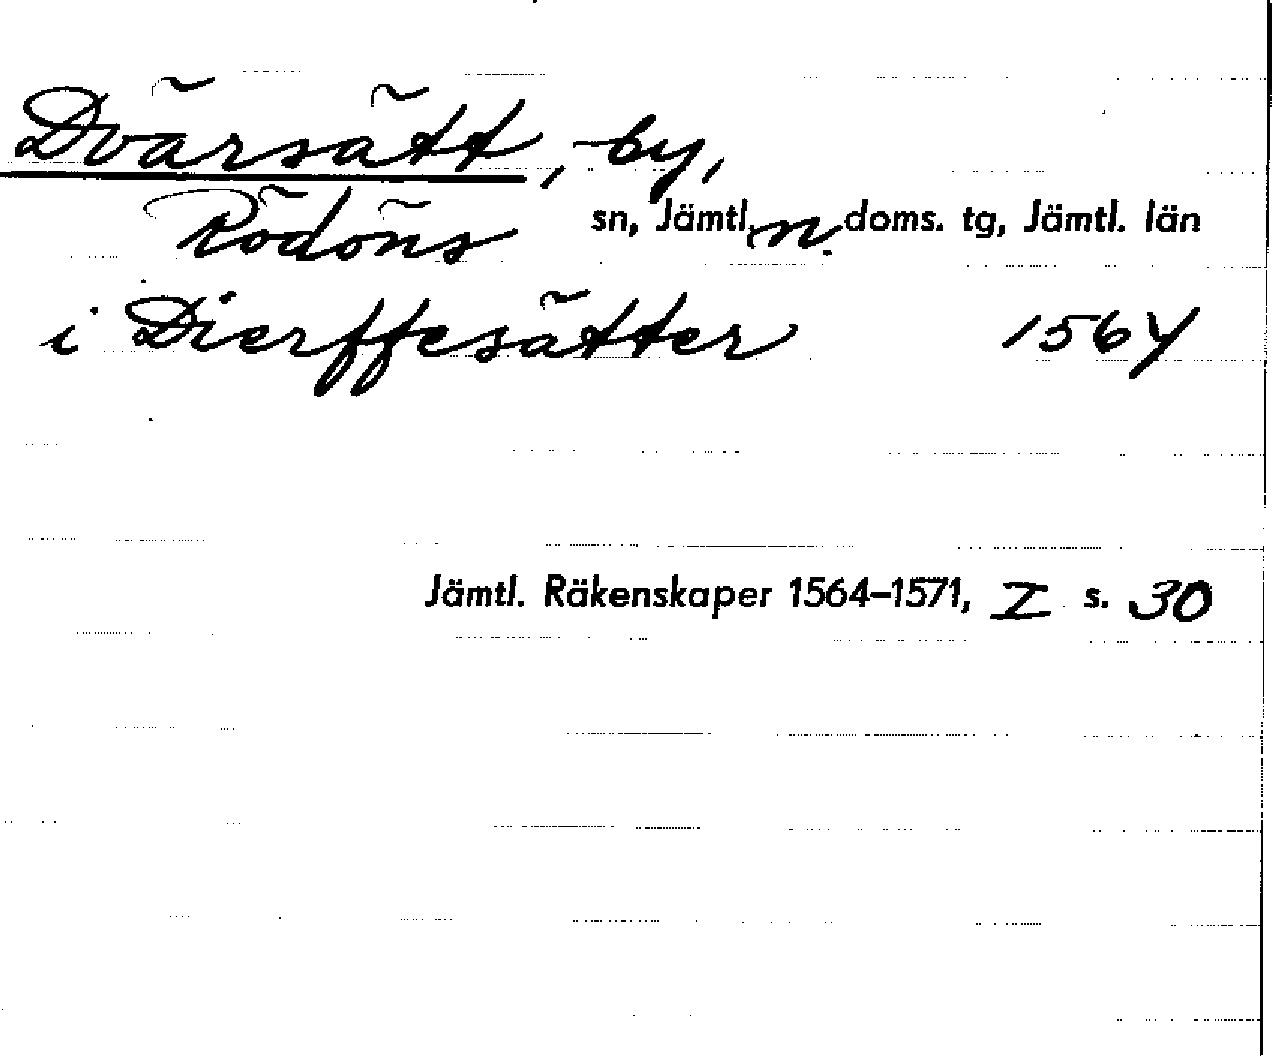 Dvärsätt, by,
Rödöns sn, Jämtl. n. doms. tg, Jämtl. län
i Dierffesätter 1564
Jämtl. Räkenskaper 1564–1571, I s. 30